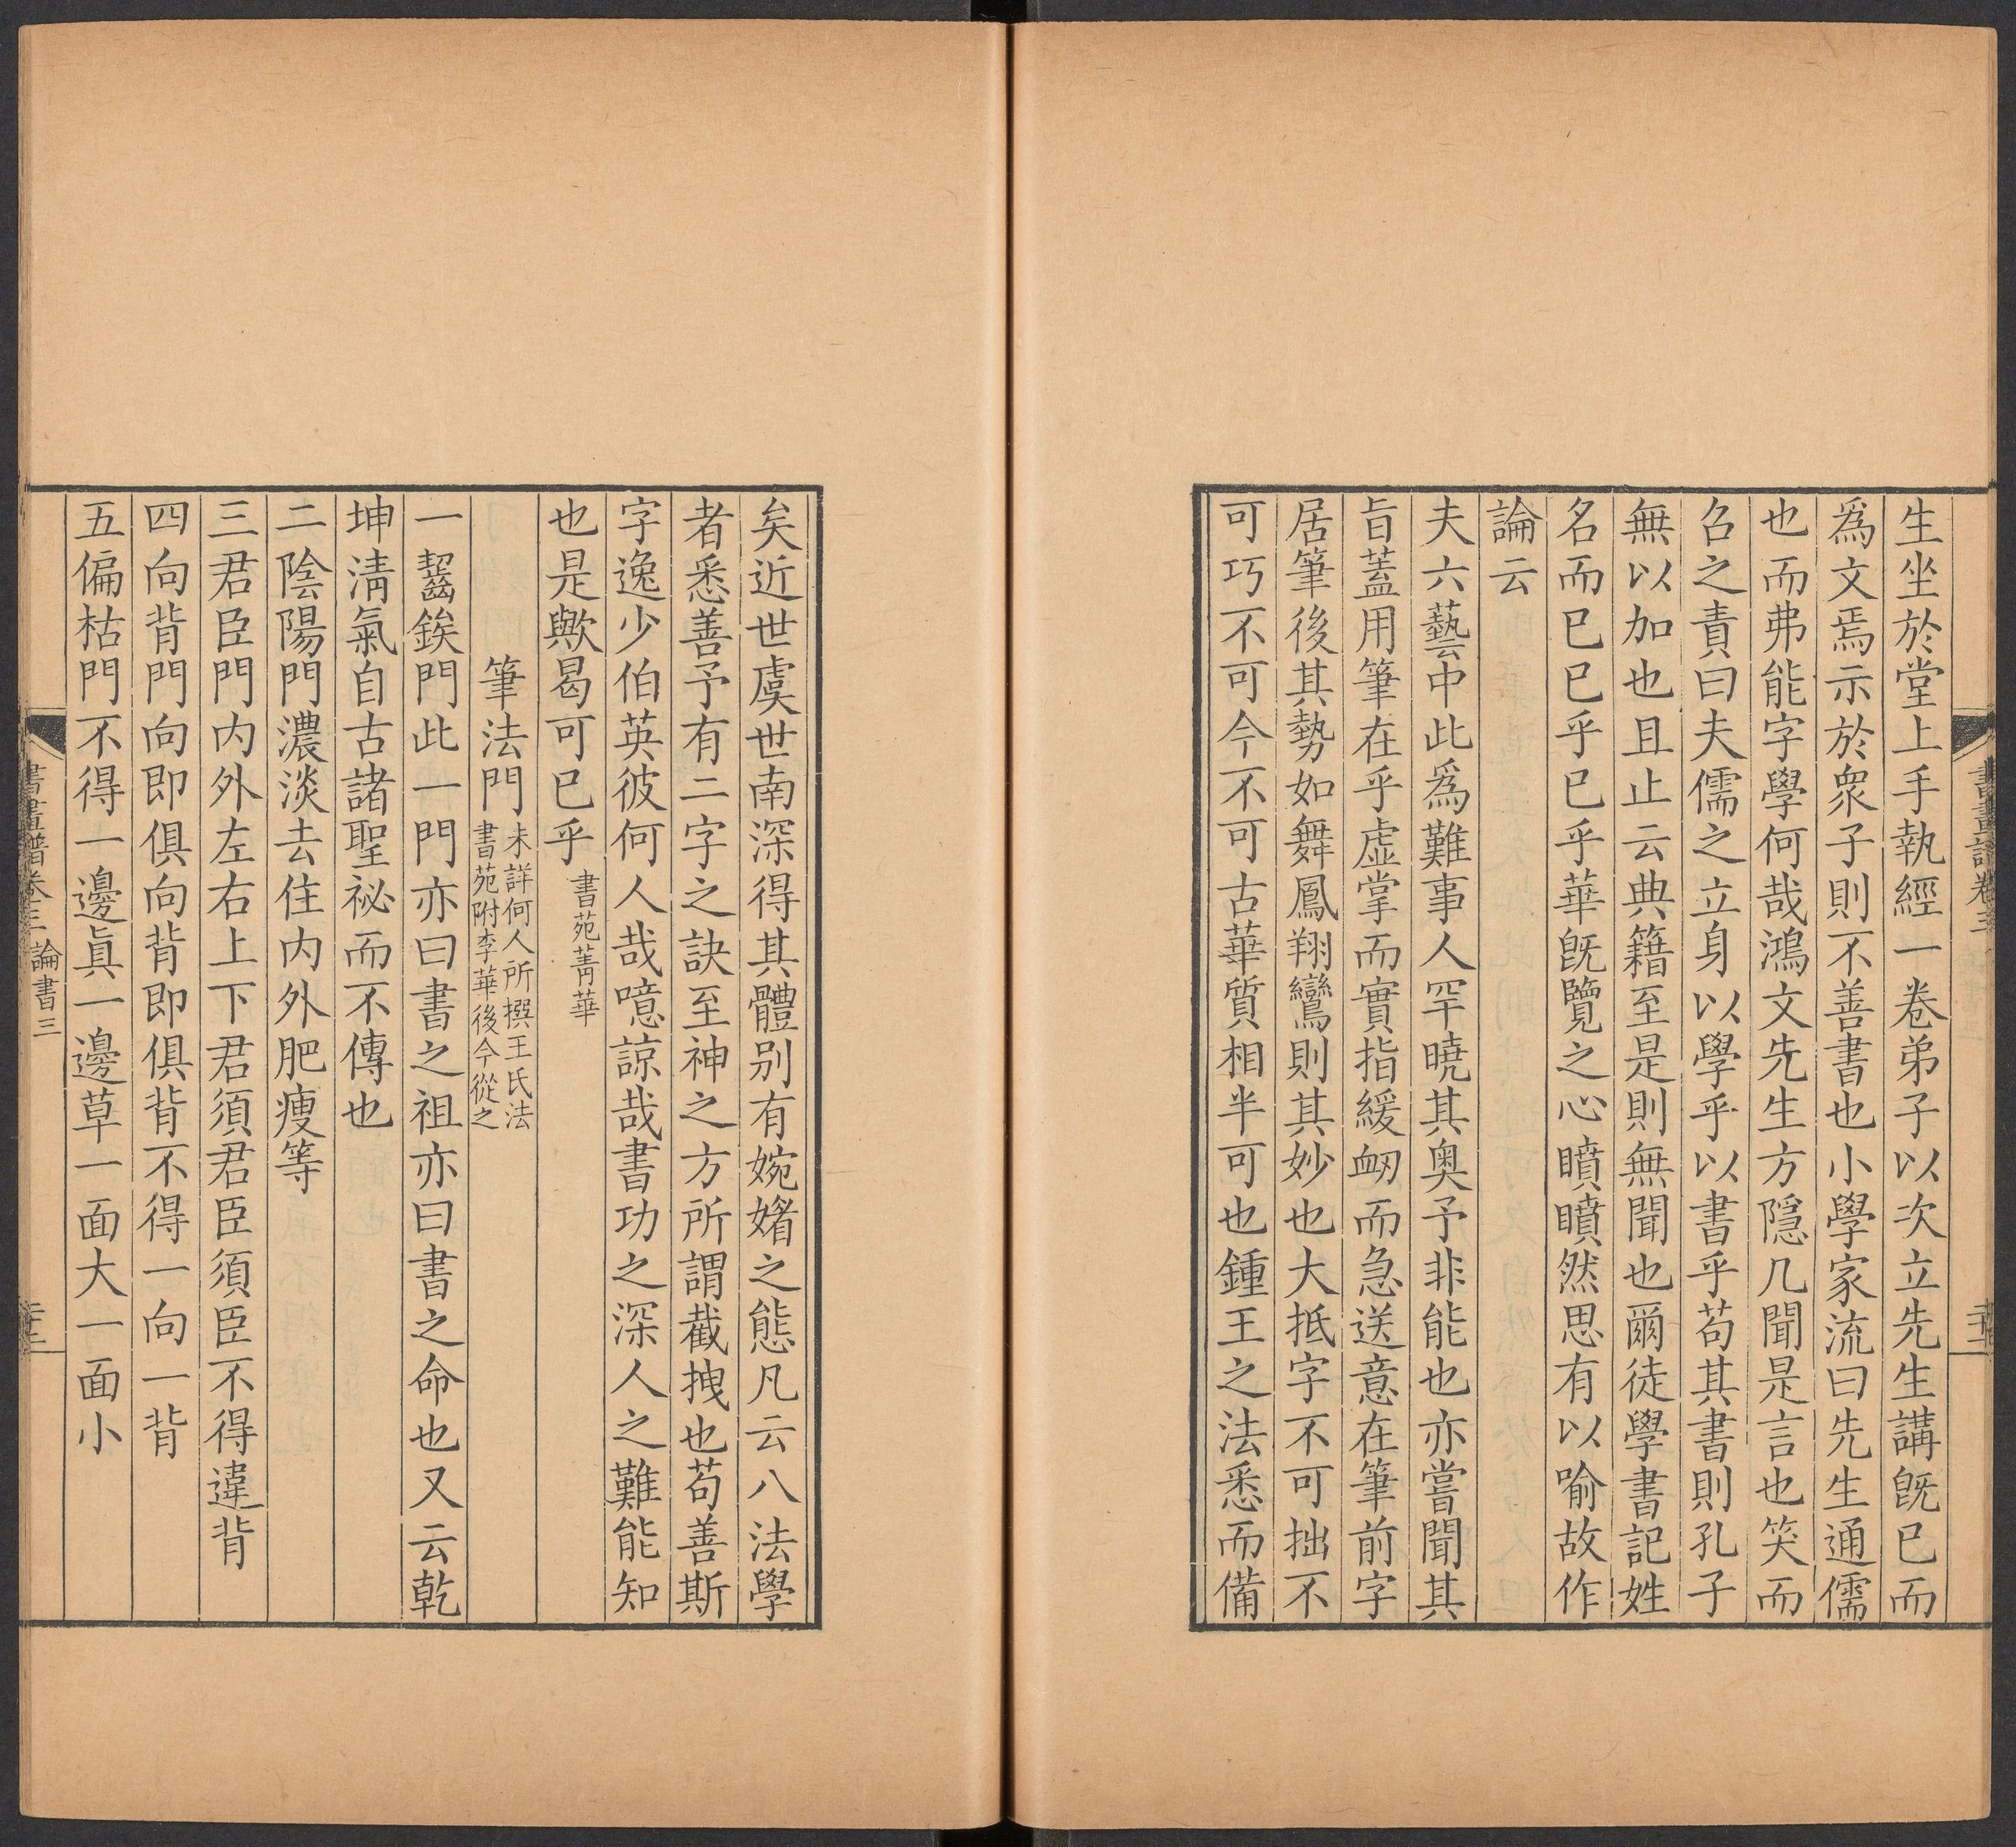 生坐於堂上手執經一卷弟子以次立先生講旣已而
爲文焉示於衆子則不善書也小學家流曰先生通儒
也而弗能字學何哉鴻文先生方隱几聞是言也笑而
召之責曰夫儒之立身以學乎以書乎苟其書則孔子
無以加也且止云典籍至是則無聞也爾徒學書記姓
名而已已乎已乎華旣覽之心瞔瞔然思有以喻故作
論云
夫六藝中此爲難事人罕曉其奥予非能也亦嘗聞其
旨蓋用筆在乎虛掌而實指緩衂而急送意在筆前字
居筆後其勢如舞鳳翔鸞則其妙也大抵字不可拙不
可巧不可今不可古華質相半可也鍾王之法悉而備
矣近世虞世南深得其體别有婉媎之態凡云八法學
者悉善予有二字之訣至神之方所謂截拽也苟善斯
字逸少伯英彼何人哉噫諒哉書功之深人之難能知
也是歟曷可已乎書苑菁華
筆法門未詳何人所撰王氏法
書苑附李華後今從之
一齧鋑門此一門亦曰書之祖亦曰書之命也又云乾
坤淸氣自古諸聖祕而不傳也
二陰陽門濃淡去住内外肥瘦等
三君臣門内外左右上下君須君臣須臣不得違背
四向背門向即俱向背即俱背不得一向一背
五偏枯門不得一邊眞一邊草一面大一面小
書畫譜卷三 論書三